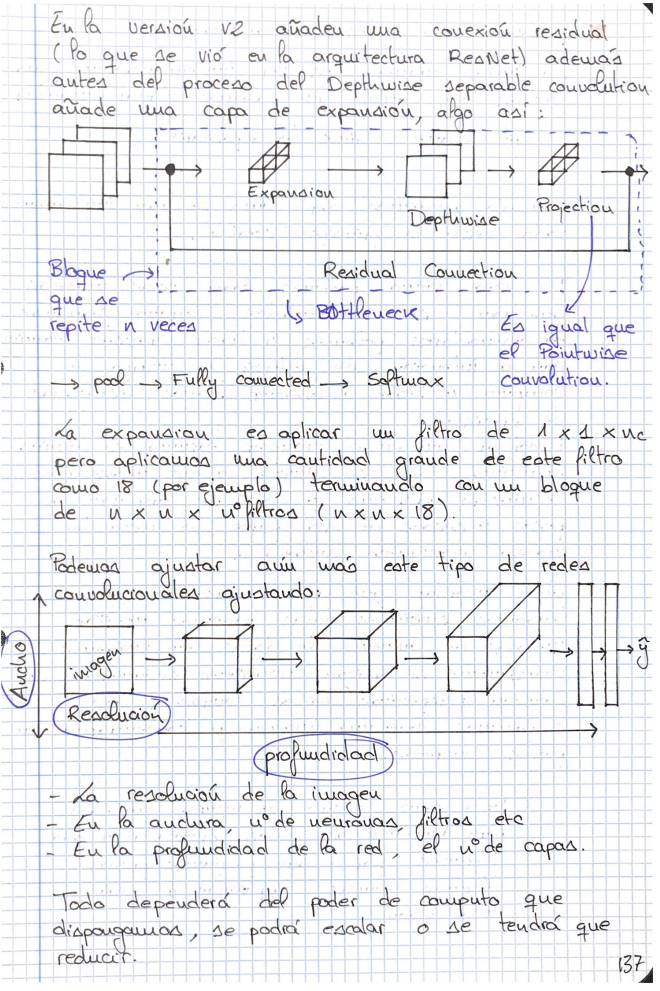 En la versión v2 añaden una conexión residual
(lo que se vió en la arquitectura ResNet) además
antes del proceso del Depthwise separable convolution
añade una capa de expansión, algo así:
Expansion
Depthwise
Projection
Residual Connection
Bloque
que se
repite n veces
Bottleneck
Es igual que
el Pointwise
convolution.
→ pool → Fully connected → Softmax
La expansion es aplicar un filtro de 1 x 1 x nc
pero aplicamos una cantidad grande de este filtro
como 18 (por ejemplo) terminando con un bloque
de n x n x nº filtros (n x n x 18).
Podemos ajustar aún más este tipo de redes
convolucionales ajustando:
Ancho
imagen
ŷ
Resolución
profundidad
- La resolución de la imagen
- En la anchura, nº de neuronas, filtros etc
- En la profundidad de la red, el nº de capas.
Todo dependerá del poder de computo que
dispongamos, se podrá escalar o se tendrá que
reducir.
137